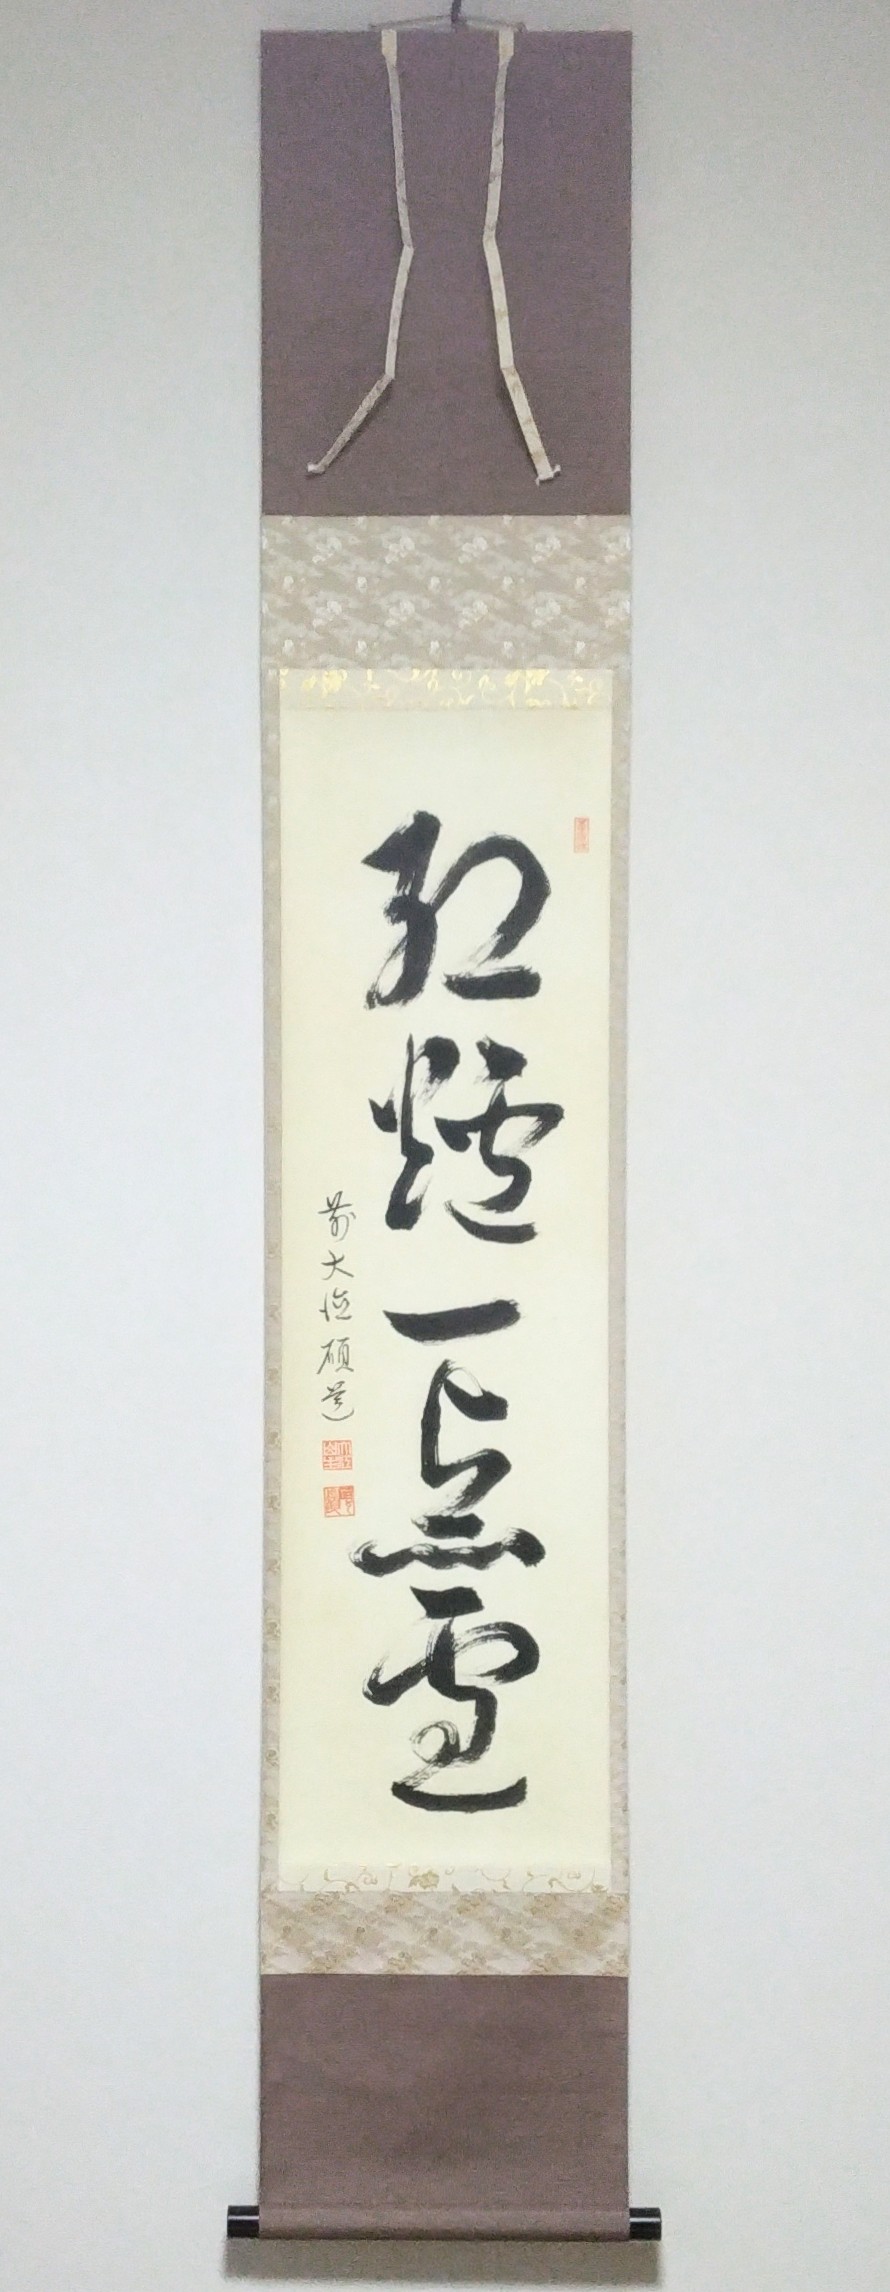 紅炉一点雪
前大徳碩道